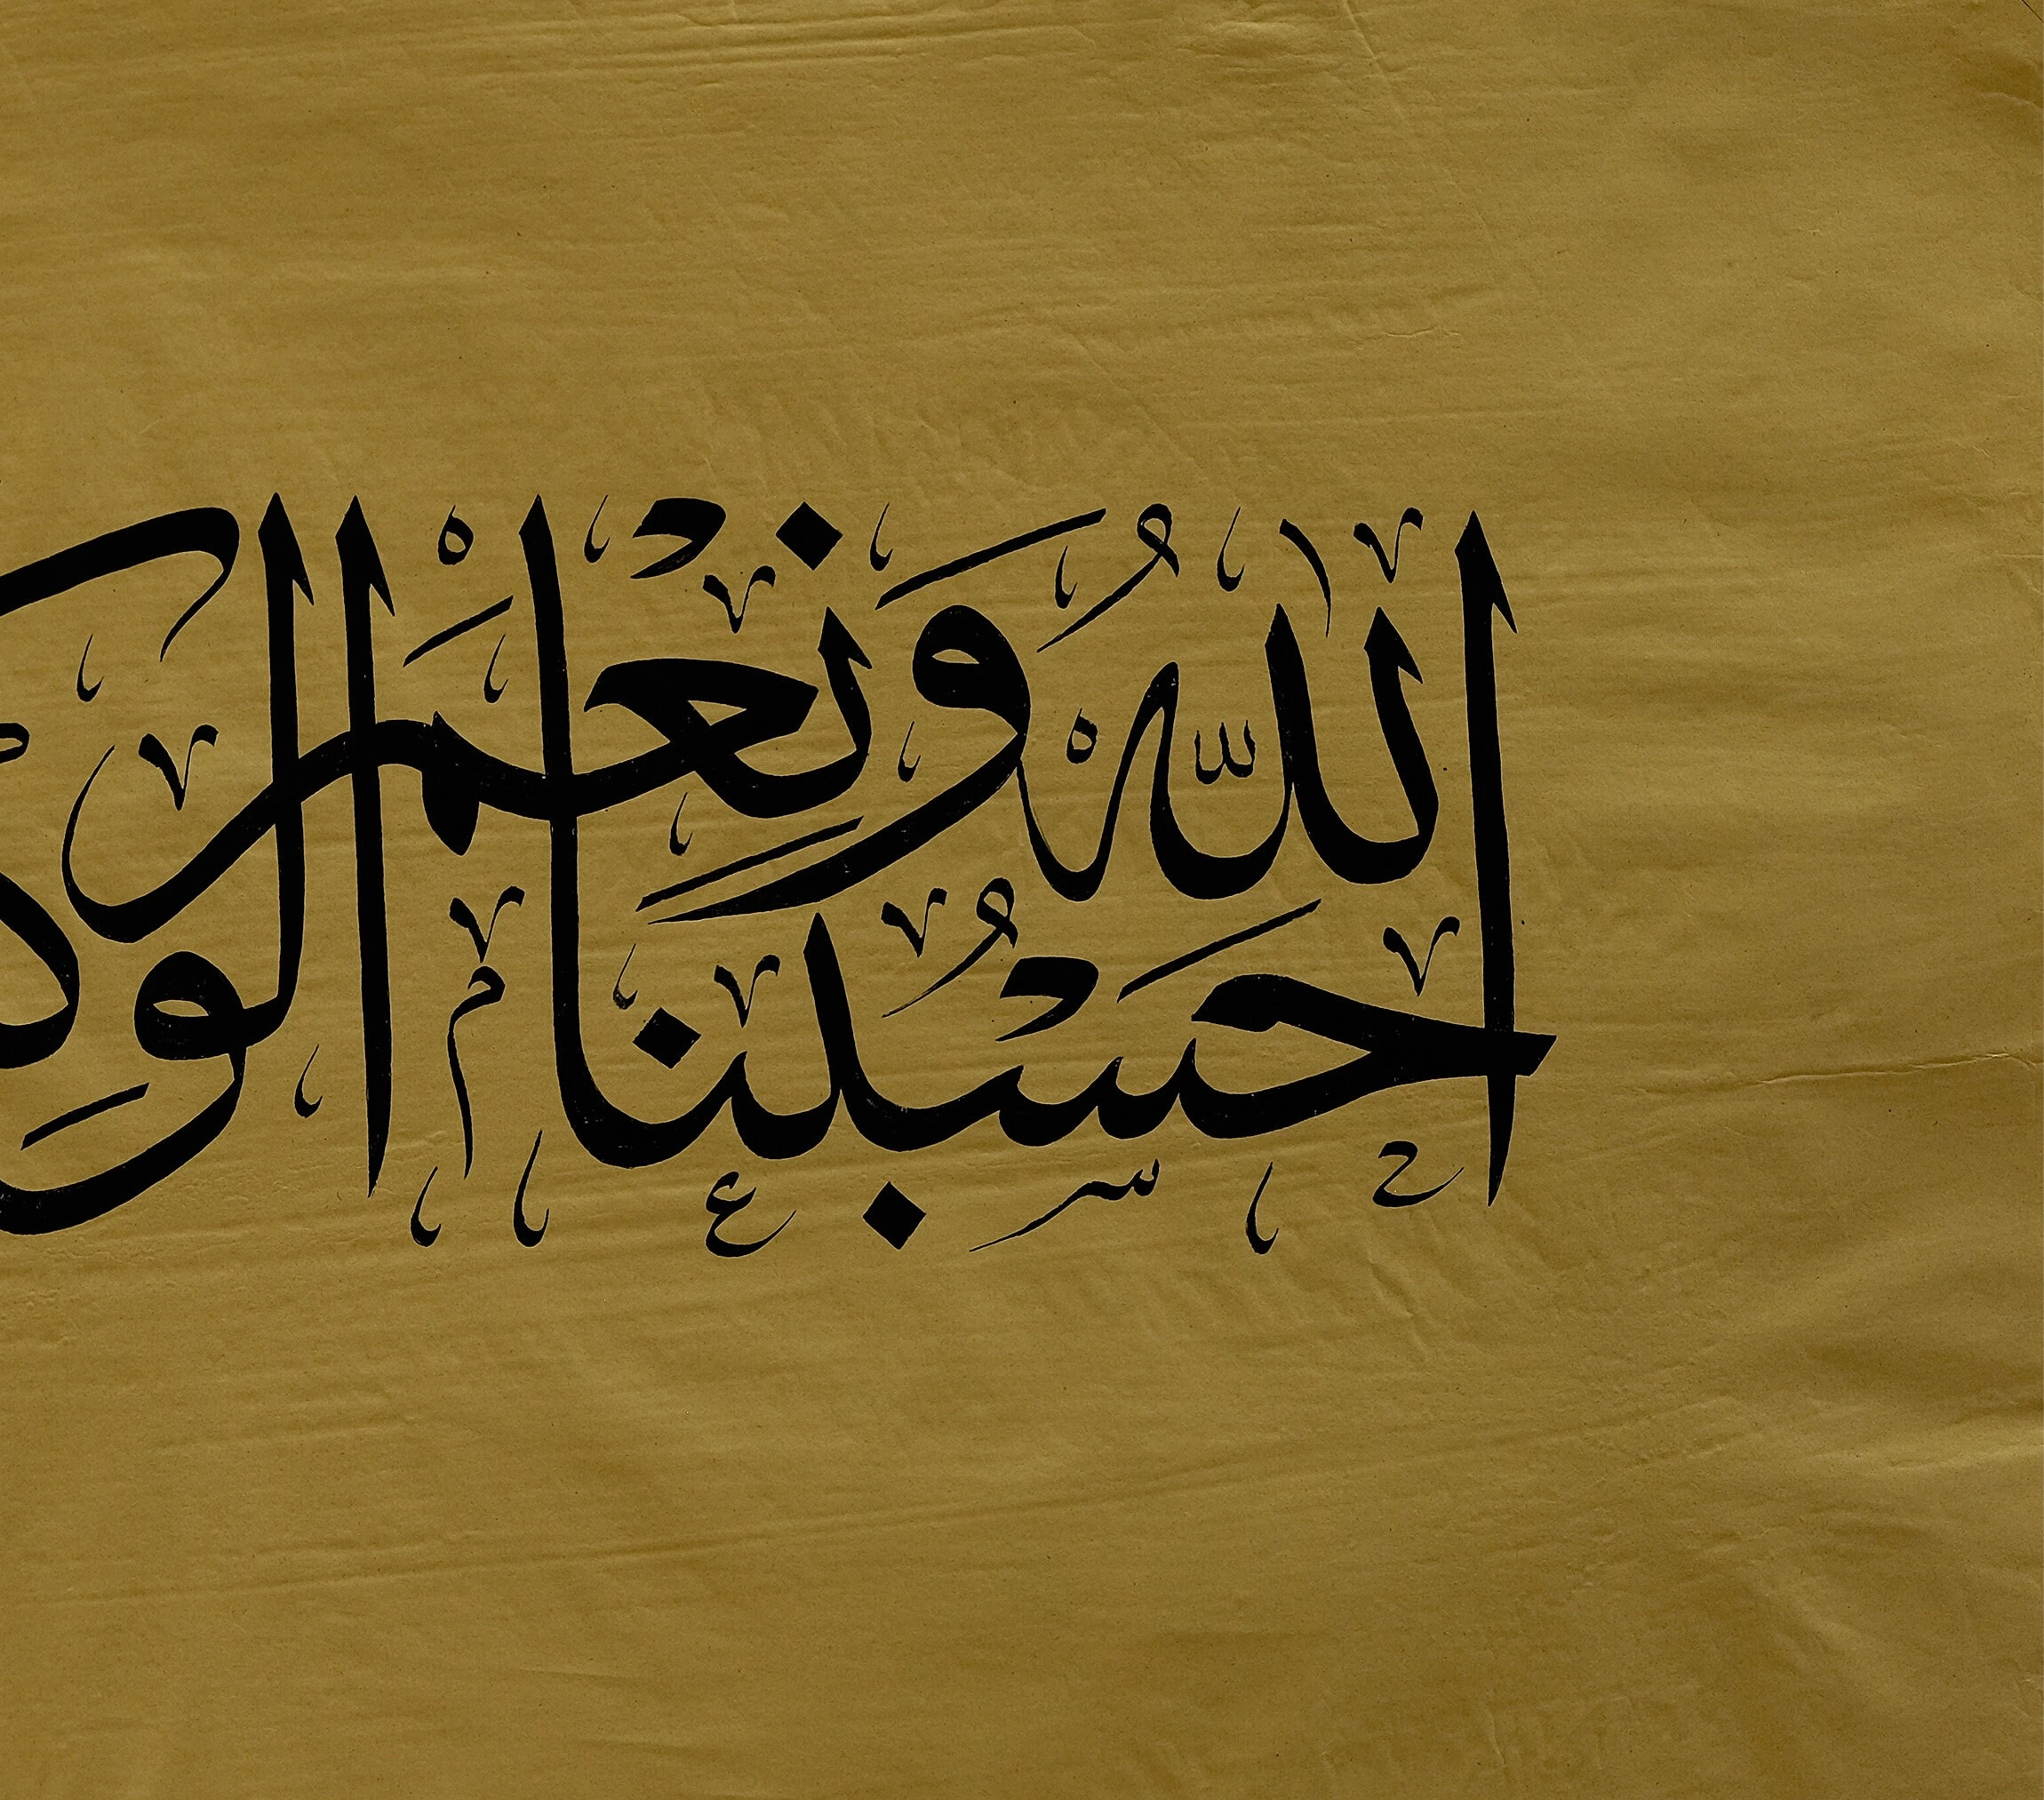 حَسْبُنَا اللهُ وَنِعْمَ الوَك